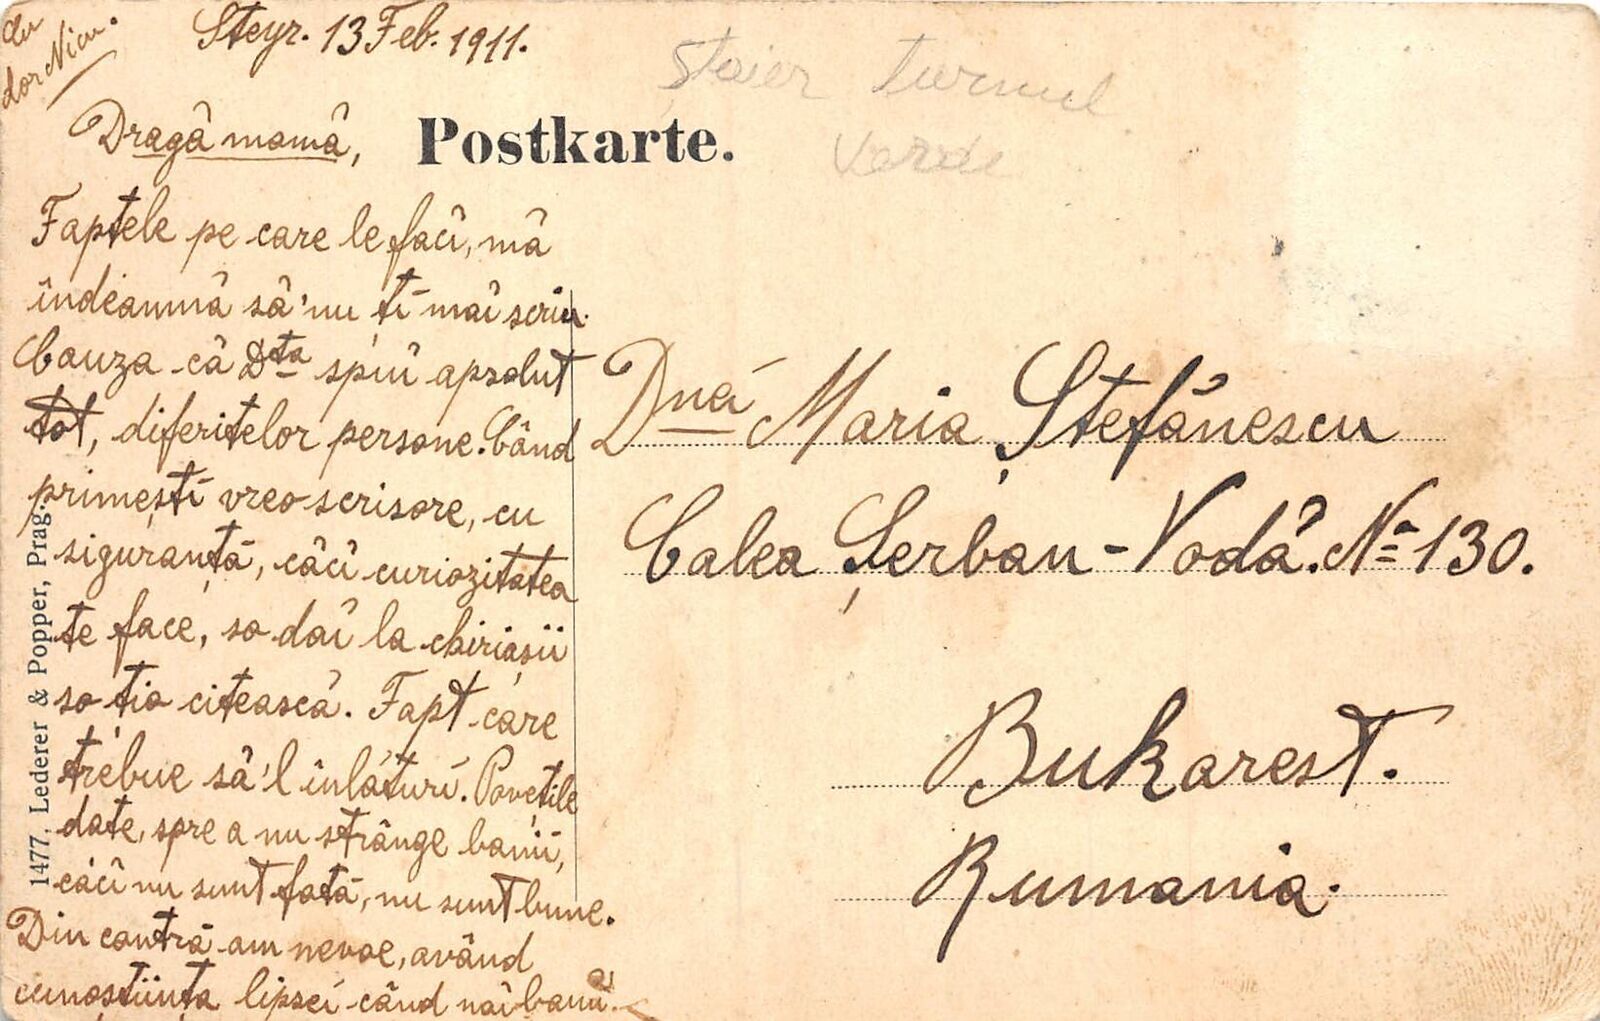 Steyr. 13 Feb. 1911.
cu
dor Nicu.
Staier turnul
verde
Postkarte.
Dragă mamă,
Faptele pe care le facĭ, mă
îndeamnă să'nu tĭ maĭ scriu.
Cauza că Dta spuĭ apsolut
tot, diferitelor persone. Când
primeștĭ vreo scrisore, cu
siguranță, căcĭ curiozitatea
te face, so daĭ la chiriașii
so tia citească. Fapt care
trebue să'l înlăturĭ. Povețile
date, spre a nu strânge banii,
căcĭ nu sunt fată, nu sunt bune.
Din contră am nevoe, având
cunoștiința lipseĭ când naĭ banĭ.
Dnă Maria Ștefănescu
Calea Șerban-Vodă. No 130.
Bukarest.
Rumania.
1477. Lederer & Popper, Prag.